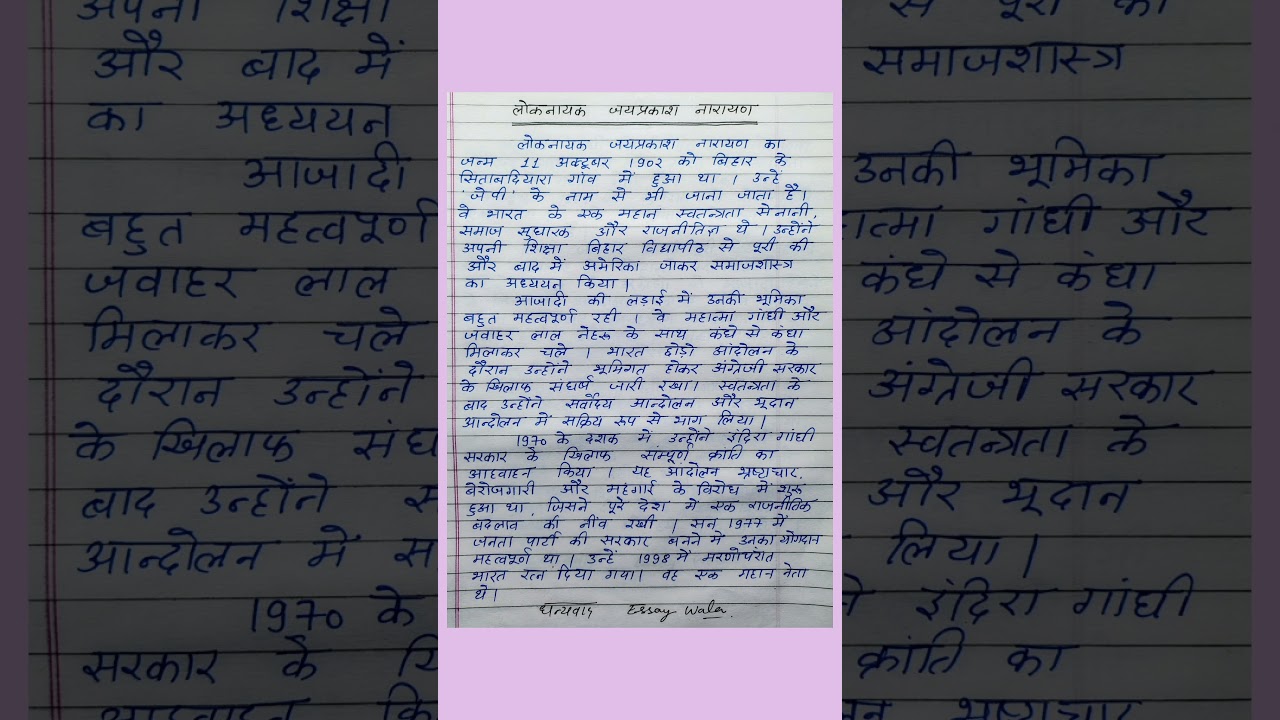 लोकनायक जयप्रकाश नारायण
लोकनायक जयप्रकाश नारायण का
जन्म 11 अक्टूबर 1902 को बिहार के
सिताबदियारा गांव में हुआ था । उन्हें
'जेपी' के नाम से भी जाना जाता है।
वे भारत के एक महान स्वतन्त्रता सेनानी,
समाज सुधारक और राजनीतिज्ञ थे । उन्होंने
अपनी शिक्षा बिहार विद्यापीठ से पूरी की
और बाद में अमेरिका जाकर समाजशास्त्र
का अध्ययन किया ।
आजादी की लड़ाई में उनकी भूमिका
बहुत महत्वपूर्ण रही । वे महात्मा गांधी और
जवाहर लाल नेहरू के साथ कंधे से कंधा
मिलाकर चले । भारत छोड़ो आंदोलन के
दौरान उन्होंने भूमिगत होकर अंग्रेजी सरकार
के खिलाफ संघर्ष जारी रखा। स्वतन्त्रता के
बाद उन्होंने सर्वोदय आन्दोलन और भूदान
आन्दोलन में सक्रिय रूप से भाग लिया।
1970 के दशक में उन्होंने इंदिरा गांधी
सरकार के खिलाफ सम्पूर्ण क्रांति का
आहवाहन किया । यह आंदोलन भ्रष्टाचार,
बेरोजगारी और महंगाई के विरोध में शुरू
हुआ था, जिसने पूरे देश में एक राजनीतिक
बदलाव की नींव रखी । सन् 1977 में
जनता पार्टी की सरकार बनने में उनका योगदान
महत्वपूर्ण था । उन्हें 1998 में मरणोपरांत
भारत रत्न दिया गया। वह एक महान नेता
थे।
धन्यवाद Essay Wala.